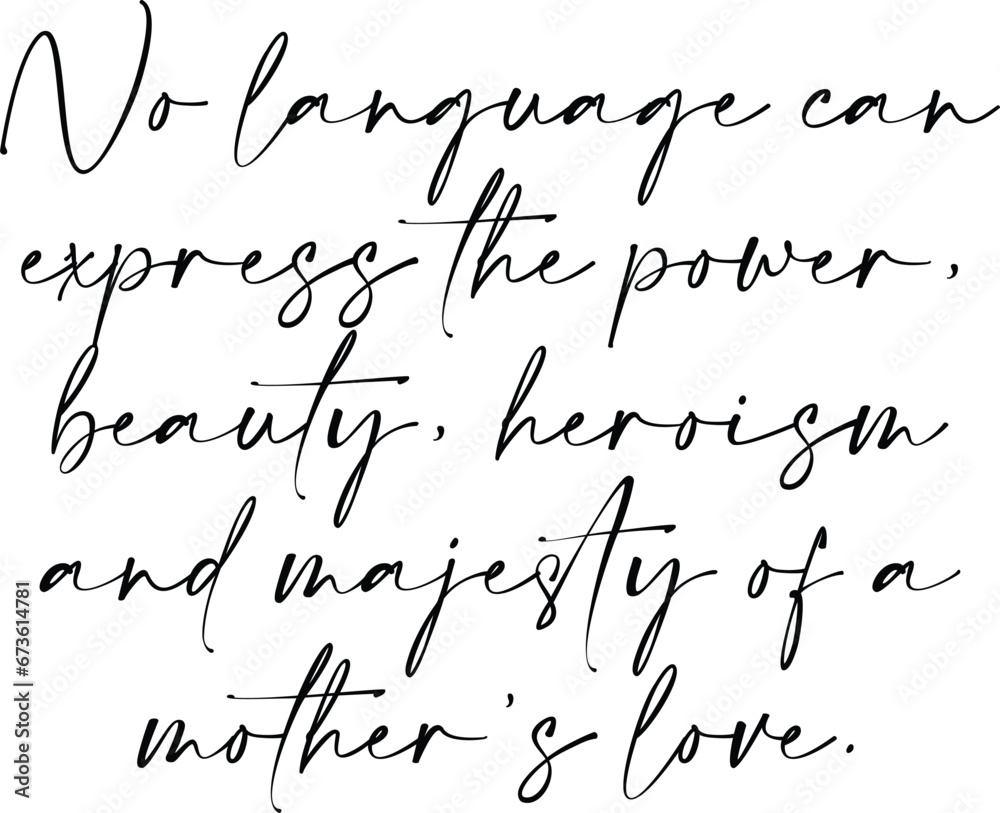 No language can
express the power,
beauty, heroism
and majesty of a
mother's love.
Adobe Stock | #673614781